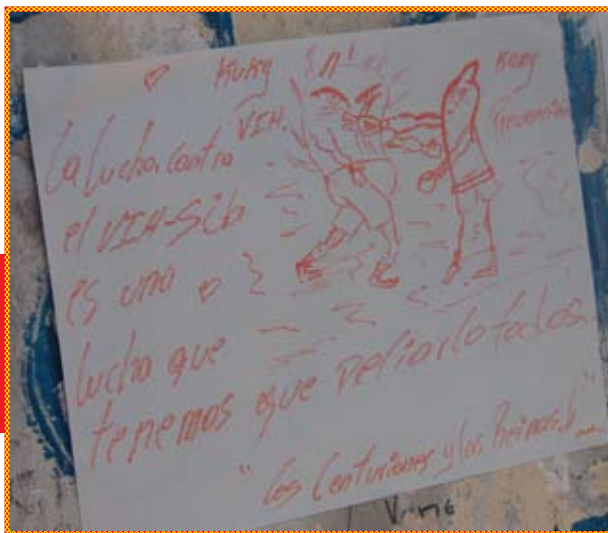 Kuky Kony
VIH. Prevención
La lucha contra
el VIH-Sib
es una
lucha que
tenemos que peliarlo todos.
"Los Centuriones y las Reinas